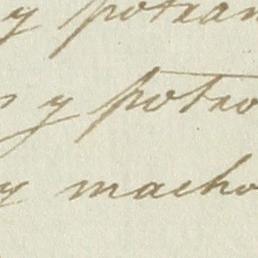 y potran
y potro
y macho